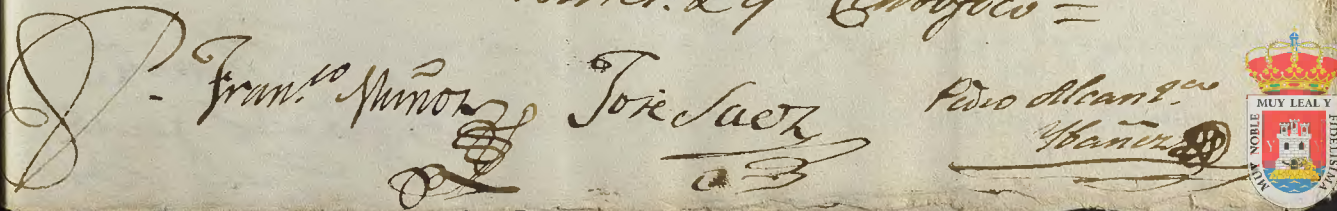 Certifico =
Fran.co Muñoz Jose Saez Pedro Alcant.ra
Ybañez
MUY NOBLE MUY LEAL Y FIDELISIMA